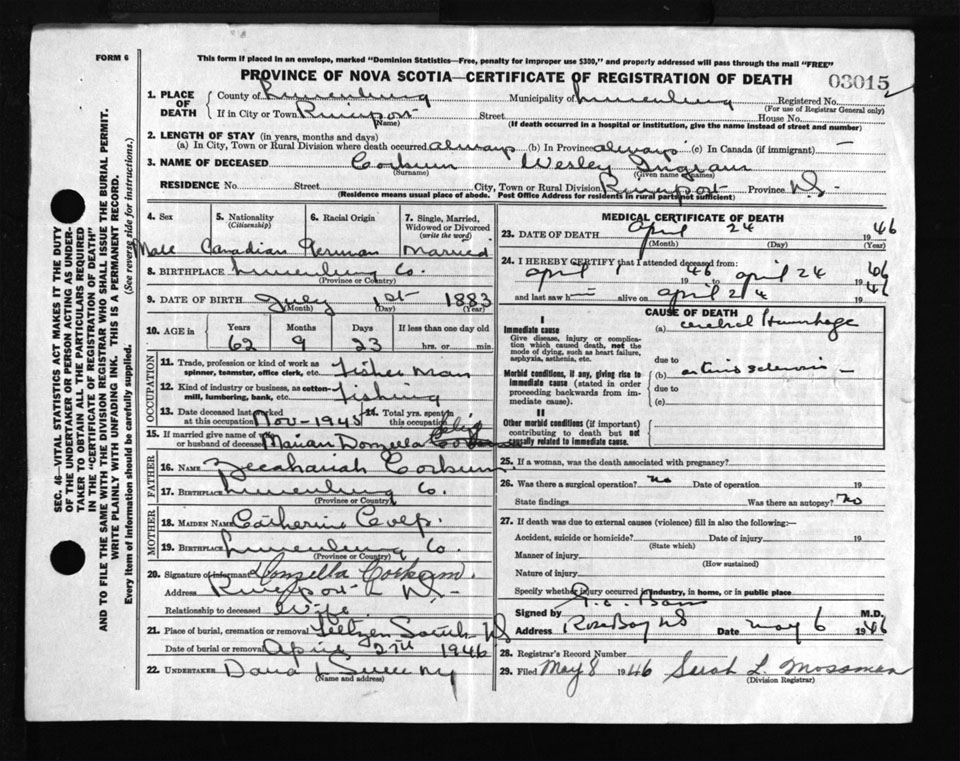 FORM 6
This form if placed in an envelope, marked "Dominion Statistics—Free, penalty for improper use $300," and properly addressed will pass through the mail "FREE"
PROVINCE OF NOVA SCOTIA—CERTIFICATE OF REGISTRATION OF DEATH
03015
1. PLACE OF DEATH County of Lunenburg Municipality of Lunenburg Registered No.
(For use of Registrar General only)
If in City or Town Riverport Street House No.
(Name) (If death occurred in a hospital or institution, give the name instead of street and number)
2. LENGTH OF STAY (in years, months and days)
(a) In City, Town or Rural Division where death occurred always (b) In Province always (c) In Canada (if immigrant) —
3. NAME OF DECEASED Corkum Wesley Ingram
(Surname) (Given name or names)
RESIDENCE No. Street City, Town or Rural Division Riverport Province N.S.
(Residence means usual place of abode. Post Office Address for residents in rural parts not sufficient)
4. Sex 5. Nationality (Citizenship) 6. Racial Origin 7. Single, Married, Widowed or Divorced (write the word)
Male Canadian German Married
8. BIRTHPLACE Lunenburg Co.
(Province or Country)
9. DATE OF BIRTH July 1st 1883
(Month) (Day) (Year)
10. AGE in Years Months Days If less than one day old
62 9 23 hrs. or min.
OCCUPATION
11. Trade, profession or kind of work as spinner, teamster, office clerk, etc. Fisher man
12. Kind of industry or business, as cotton-mill, lumbering, bank, etc. Fishing
13. Date deceased last worked at this occupation Nov - 1945 14. Total yrs. spent in this occupation
15. If married give name of wife or husband of deceased Marian Donzella
FATHER
16. NAME Zecahariah Corkum
17. BIRTHPLACE Lunenburg Co.
(Province or Country)
MOTHER
18. MAIDEN NAME Catherine
19. BIRTHPLACE Lunenburg Co.
(Province or Country)
20. Signature of informant Donzella Corkum.
Address Riverport N.S.
Relationship to deceased Wife
21. Place of burial, cremation or removal Feltzen South NS
Date of burial or removal April 27th 1946
22. UNDERTAKER David Sweeny
(Name and address)
MEDICAL CERTIFICATE OF DEATH
23. DATE OF DEATH April 24 1946
(Month) (Day) (Year)
24. I HEREBY CERTIFY that I attended deceased from:
April 1 1946 to April 24 1946
and last saw h alive on April 24 1946
CAUSE OF DEATH
I
Immediate cause (a) cerebral Hemorrhage
Give disease, injury or complication which caused death, not the mode of dying, such as heart failure, asphyxia, asthenia, etc.
due to
Morbid conditions, if any, giving rise to immediate cause (stated in order proceeding backwards from immediate cause). (b) arteriosclerosis —
due to
(c)
II
Other morbid conditions (if important) contributing to death but not causally related to immediate cause.
25. If a woman, was the death associated with pregnancy?
26. Was there a surgical operation? No Date of operation 19
State findings Was there an autopsy? No
27. If death was due to external causes (violence) fill in also the following:—
Accident, suicide or homicide? Date of injury 19
(State which)
Manner of injury
(How sustained)
Nature of injury
Specify whether injury occurred in industry, in home, or in public place
Signed by M.D.
Address Rose Bay NS Date May 6 1946
28. Registrar's Record Number
29. Filed May 8 1946 Sarah L. Mossman
(Division Registrar)
SEC. 46—VITAL STATISTICS ACT MAKES IT THE DUTY
OF THE UNDERTAKER OR PERSON ACTING AS UNDER-
TAKER TO OBTAIN ALL THE PARTICULARS REQUIRED
IN THE "CERTIFICATE OF REGISTRATION OF DEATH"
AND TO FILE THE SAME WITH THE DIVISION REGISTRAR WHO SHALL ISSUE THE BURIAL PERMIT.
WRITE PLAINLY WITH UNFADING INK. THIS IS A PERMANENT RECORD.
Every item of information should be carefully supplied. (See reverse side for instructions).